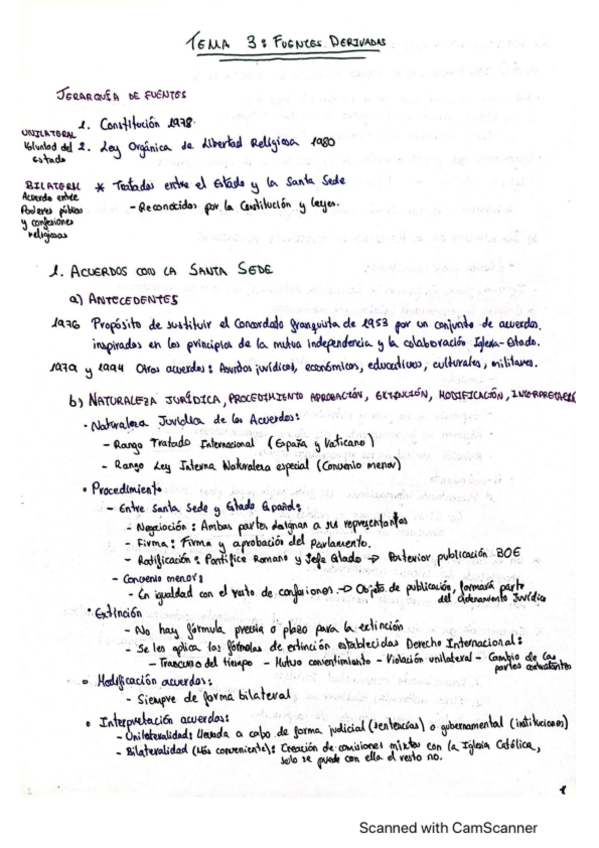 TEMA 3: FUENTES DERIVADAS
JERARQUÍA DE FUENTES
UNILATERAL
Voluntad del estado
1. Constitución 1978
2. Ley Orgánica de Libertad Religiosa 1980
BILATERAL
Acuerdo entre
Poderes públicos
y confesiones
religiosas
* Tratados entre el Estado y la Santa Sede
- Reconocidos por la Constitución y leyes.
1. ACUERDOS CON LA SANTA SEDE
a) ANTECEDENTES
1976 Propósito de sustituir el Concordato franquista de 1953 por un conjunto de acuerdos.
inspirados en los principios de la mutua independencia y la colaboración Iglesia-Estado.
1979 y 1994 Otros acuerdos: Asuntos jurídicos, económicos, educativos, culturales, militares.
b) NATURALEZA JURÍDICA, PROCEDIMIENTO APROBACIÓN, EXTINCIÓN, MODIFICACIÓN, INTERPRETACIÓN
· Naturaleza Jurídica de los Acuerdos:
- Rango Tratado Internacional (España y Vaticano)
- Rango Ley Interna Naturaleza especial (Convenio menor)
· Procedimiento
- Entre Santa Sede y Estado Español:
- Negociación: Ambas partes designan a sus representantes
- Firma: Firma y aprobación del Parlamento.
- Ratificación: Pontífice Romano y Jefe Estado → Posterior publicación BOE
- Convenio menor:
- En igualdad con el resto de confesiones → Objeto de publicación, formará parte
del ordenamiento Jurídico
· Extinción
- No hay fórmula previa o plazo para la extinción
- Se les aplica las fórmulas de extinción establecidas Derecho Internacional:
- Transcurso del tiempo - Mutuo consentimiento - Violación unilateral - Cambio de las
partes contratantes
· Modificación acuerdos:
- Siempre de forma bilateral
· Interpretación acuerdos:
- Unilateralidad: llevada a cabo de forma judicial (sentencias) o gubernamental (instituciones)
- Bilateralidad (Más conveniente): Creación de comisiones mixtas con la Iglesia Católica,
solo se puede con ella el resto no.
1
Scanned with CamScanner